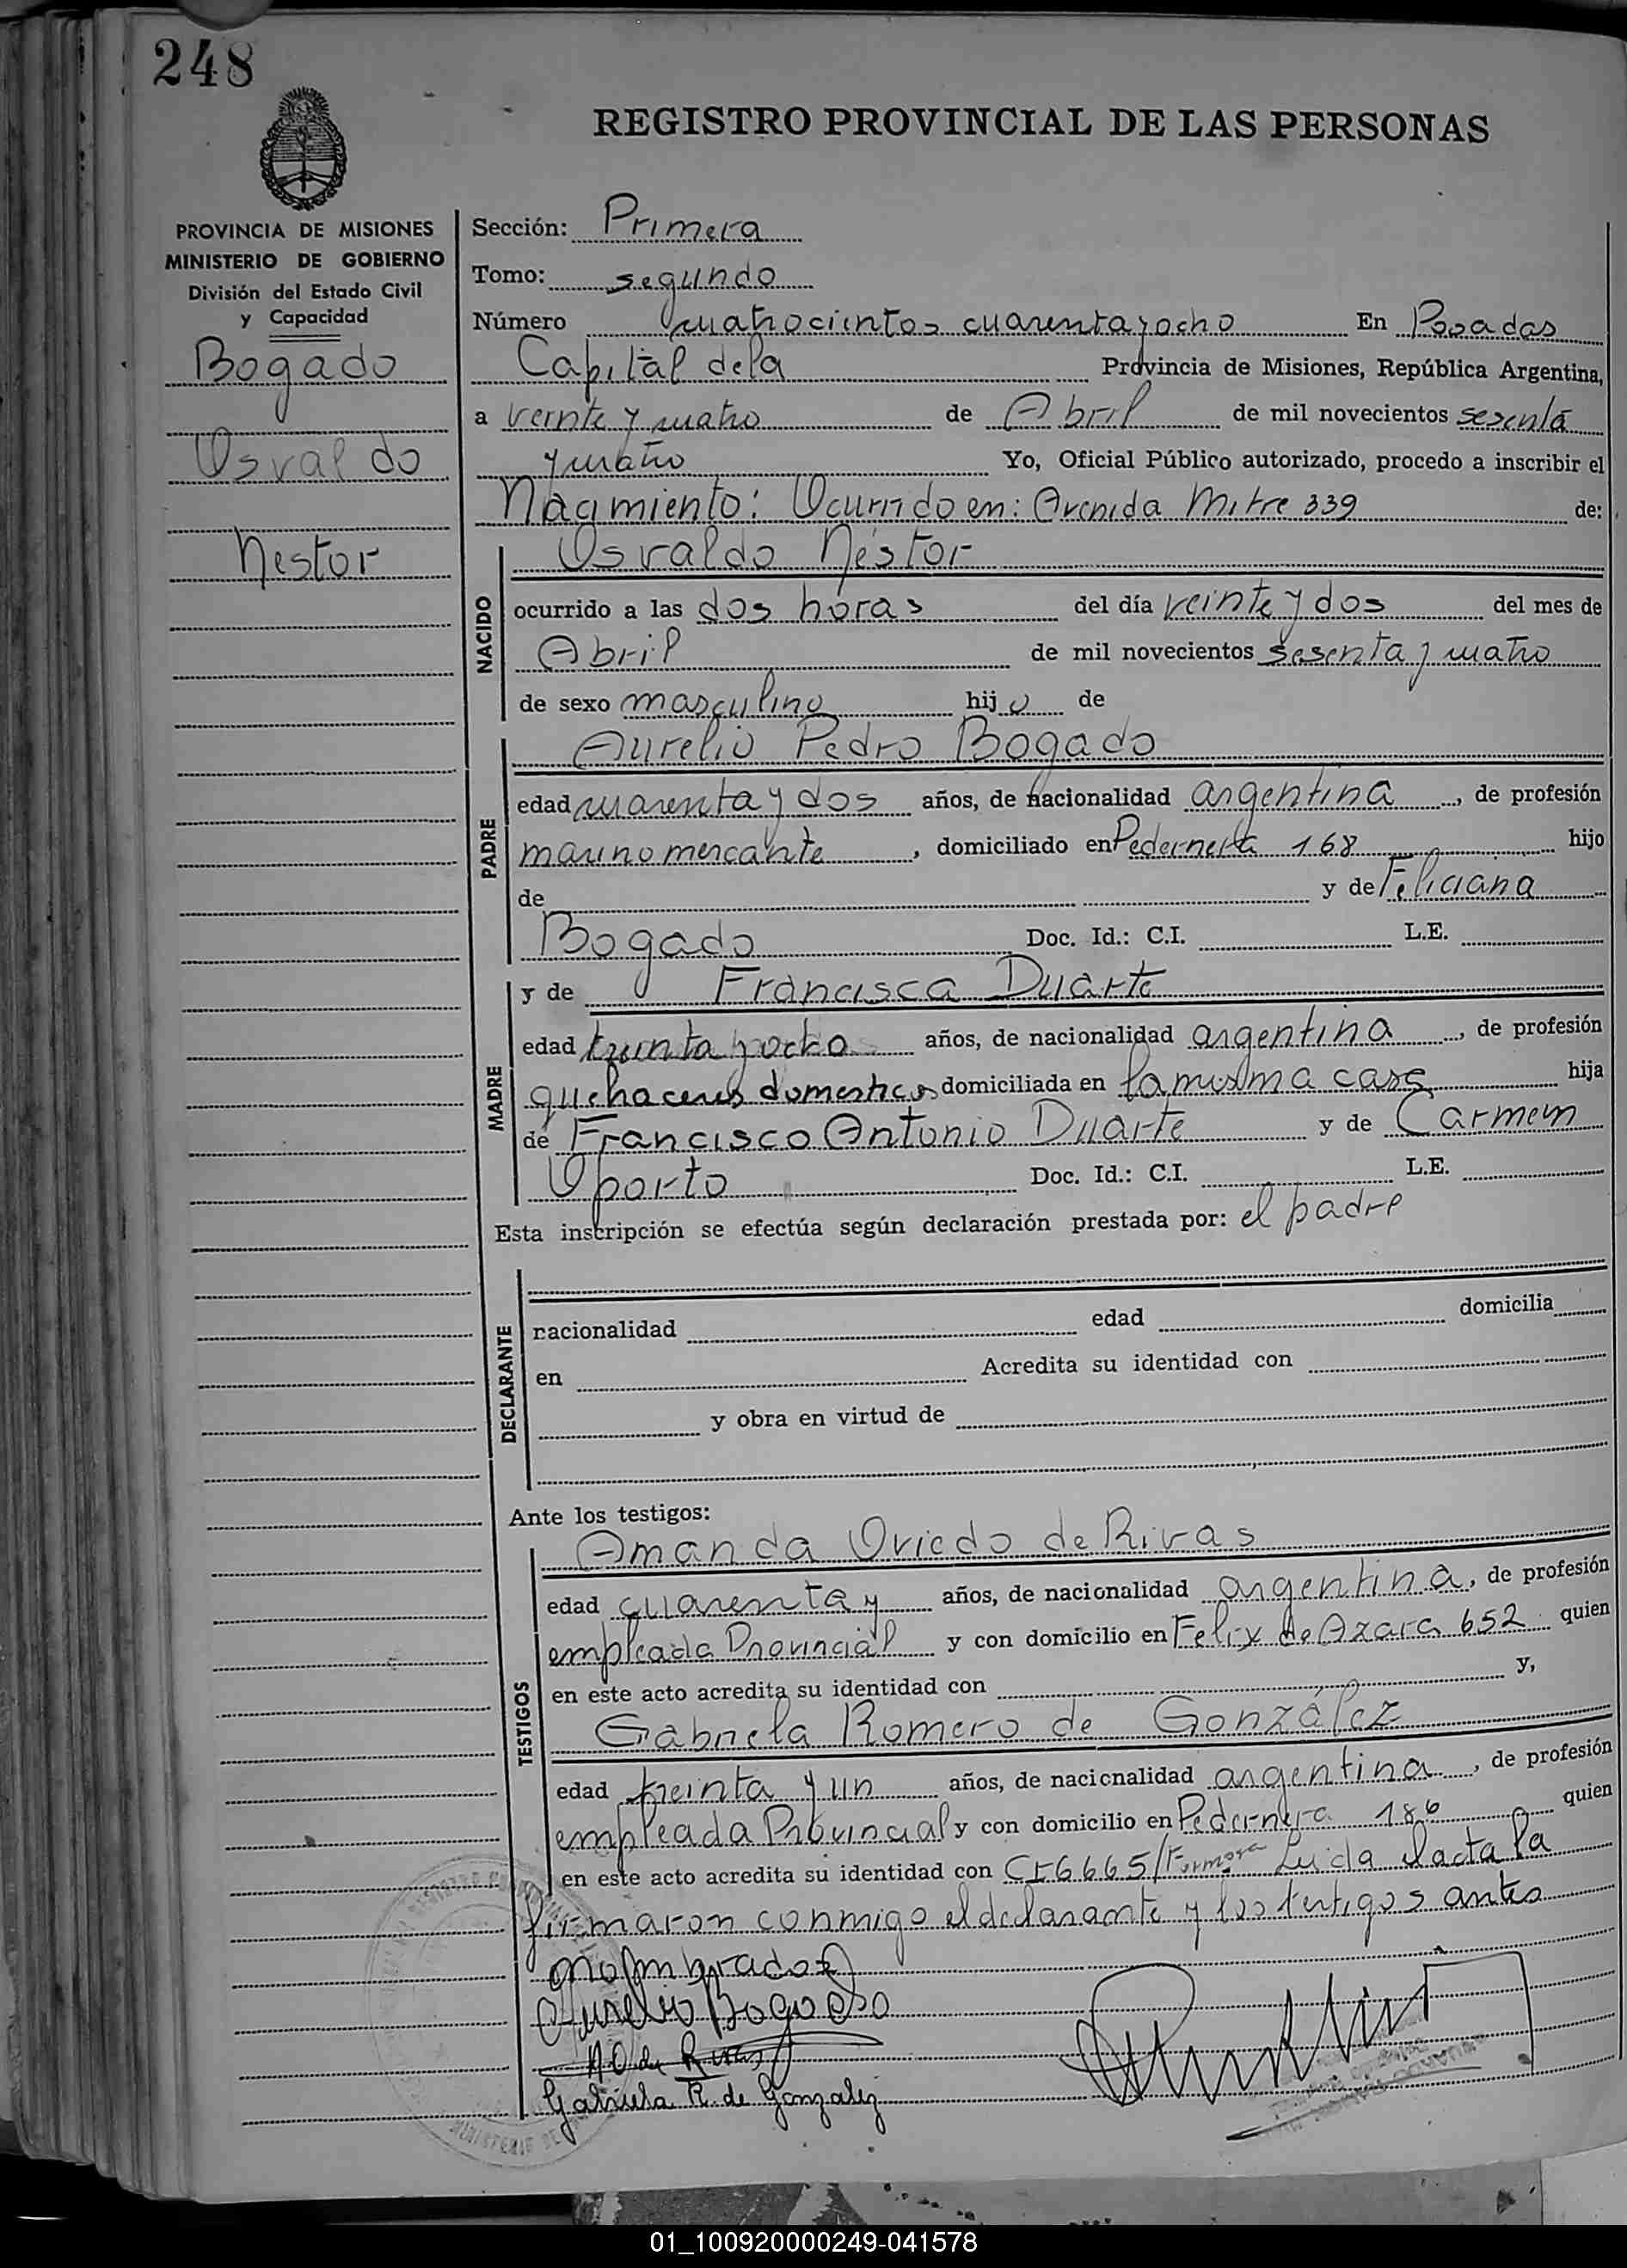 248
REGISTRO PROVINCIAL DE LAS PERSONAS
PROVINCIA DE MISIONES
MINISTERIO DE GOBIERNO
División del Estado Civil
y Capacidad
Bogado
Osvaldo
Nestor
Sección: Primera
Tomo: segundo
Número cuatrocientos cuarenta y ocho En Posadas
Capital de la Provincia de Misiones, República Argentina,
a veinte y cuatro de Abril de mil novecientos sesenta
y cuatro Yo, Oficial Público autorizado, procedo a inscribir el
Nacimiento: Ocurrido en: Avenida Mitre 339 de:
NACIDO
Osvaldo Néstor
ocurrido a las dos horas del día veinte y dos del mes de
Abril de mil novecientos sesenta y cuatro
de sexo masculino hijo de
PADRE
Aurelio Pedro Bogado
edad cuarenta y dos años, de nacionalidad argentina, de profesión
marino mercante, domiciliado en Pedernera 168 hijo
de y de Feliciana
Bogado Doc. Id.: C.I. L.E.
MADRE
y de Francisca Duarte
edad treinta y ocho años, de nacionalidad argentina, de profesión
quehaceres domesticos domiciliada en la misma casa hija
de Francisco Antonio Duarte y de Carmem
Oporto Doc. Id.: C.I. L.E.
Esta inscripción se efectúa según declaración prestada por: el padre
DECLARANTE
nacionalidad edad domicilia
en Acredita su identidad con
y obra en virtud de
Ante los testigos:
TESTIGOS
Amanda Oviedo de Rivas
edad cuarenta y años, de nacionalidad argentina, de profesión
empleada Provincial y con domicilio en Felix de Azara 652 quien
en este acto acredita su identidad con y,
Gabriela Romero de González
edad treinta y un años, de nacionalidad argentina, de profesión
empleada Provincial y con domicilio en Pedernera 186 quien
en este acto acredita su identidad con CI6665/Formosa Leida el acta la
firmaron conmigo el declarante y los testigos antes
nombrados
Aurelio Bogado
A O de Rivas
Gabriela R. de Gonzalez
01_100920000249-041578